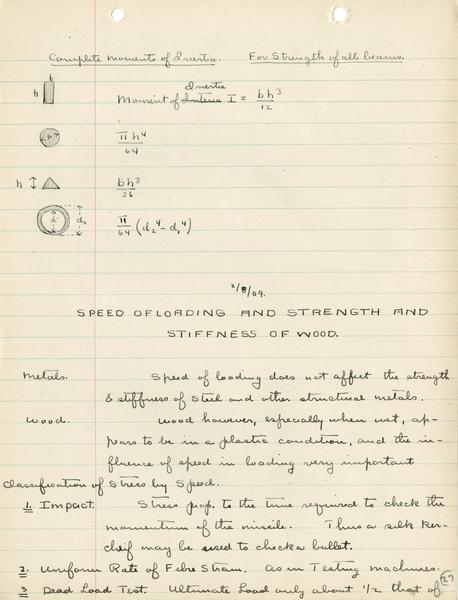 Complete Moments of Inertia. For Strength of all beams.
b
h
Inertia
Moment of Intesia I = bh³/12
h
π h⁴/64
h
bh³/36
d₁ d₂
π/64 (d₂⁴ - d₁⁴)
2/8/09.
SPEED OF LOADING AND STRENGTH AND
STIFFNESS OF WOOD.
Metals. Speed of loading does not affect the strength
& stiffness of steel and other structural metals.
Wood. Wood however, especially when wet, ap-
pears to be in a plastic condition, and the in-
fluence of speed in loading very important
Classification of Stress by Speed.
1. Impact. Stress prop. to the time required to check the
momentum of the missile. Thus a silk ker-
cheif may be used to check a bullet.
2. Uniform Rate of Fibre Strain. As in Testing machines.
3 Dead Load Test. Ultimate Load only about 1/2 that of
27